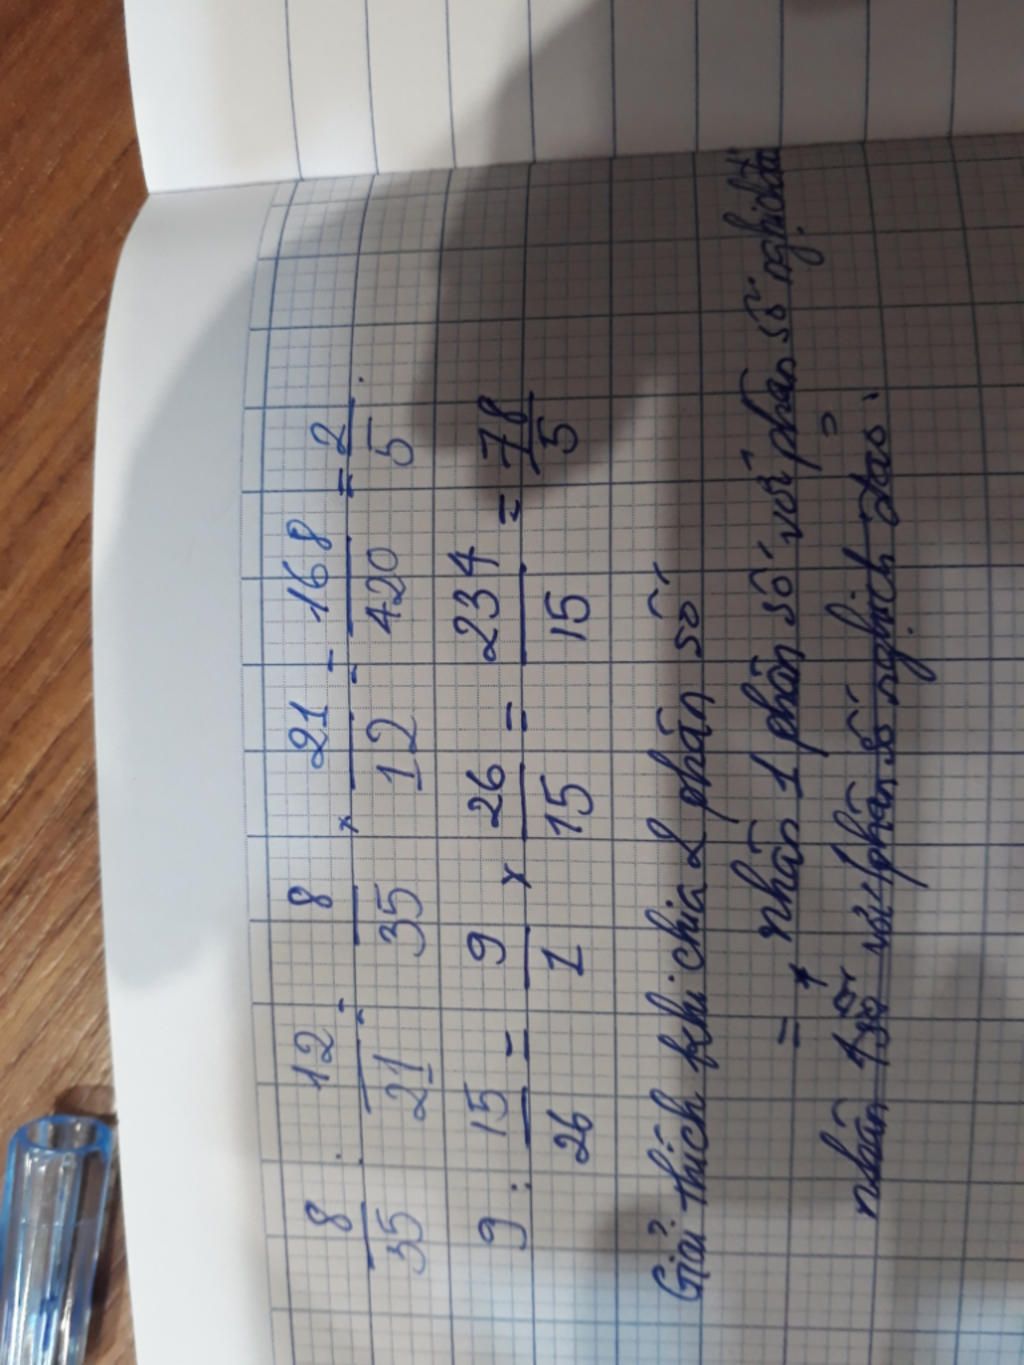 8/35 : 12/21 = 8/35 x 21/12 = 168/420 = 2/5.
9 : 15/26 = 9/1 x 26/15 = 234/15 = 78/5
Giải thích khi chia 2 phân số
= nhân 1 phân số với phân số nghịch đảo.
nhân 1 số với 1 phân số nghịch đảo.